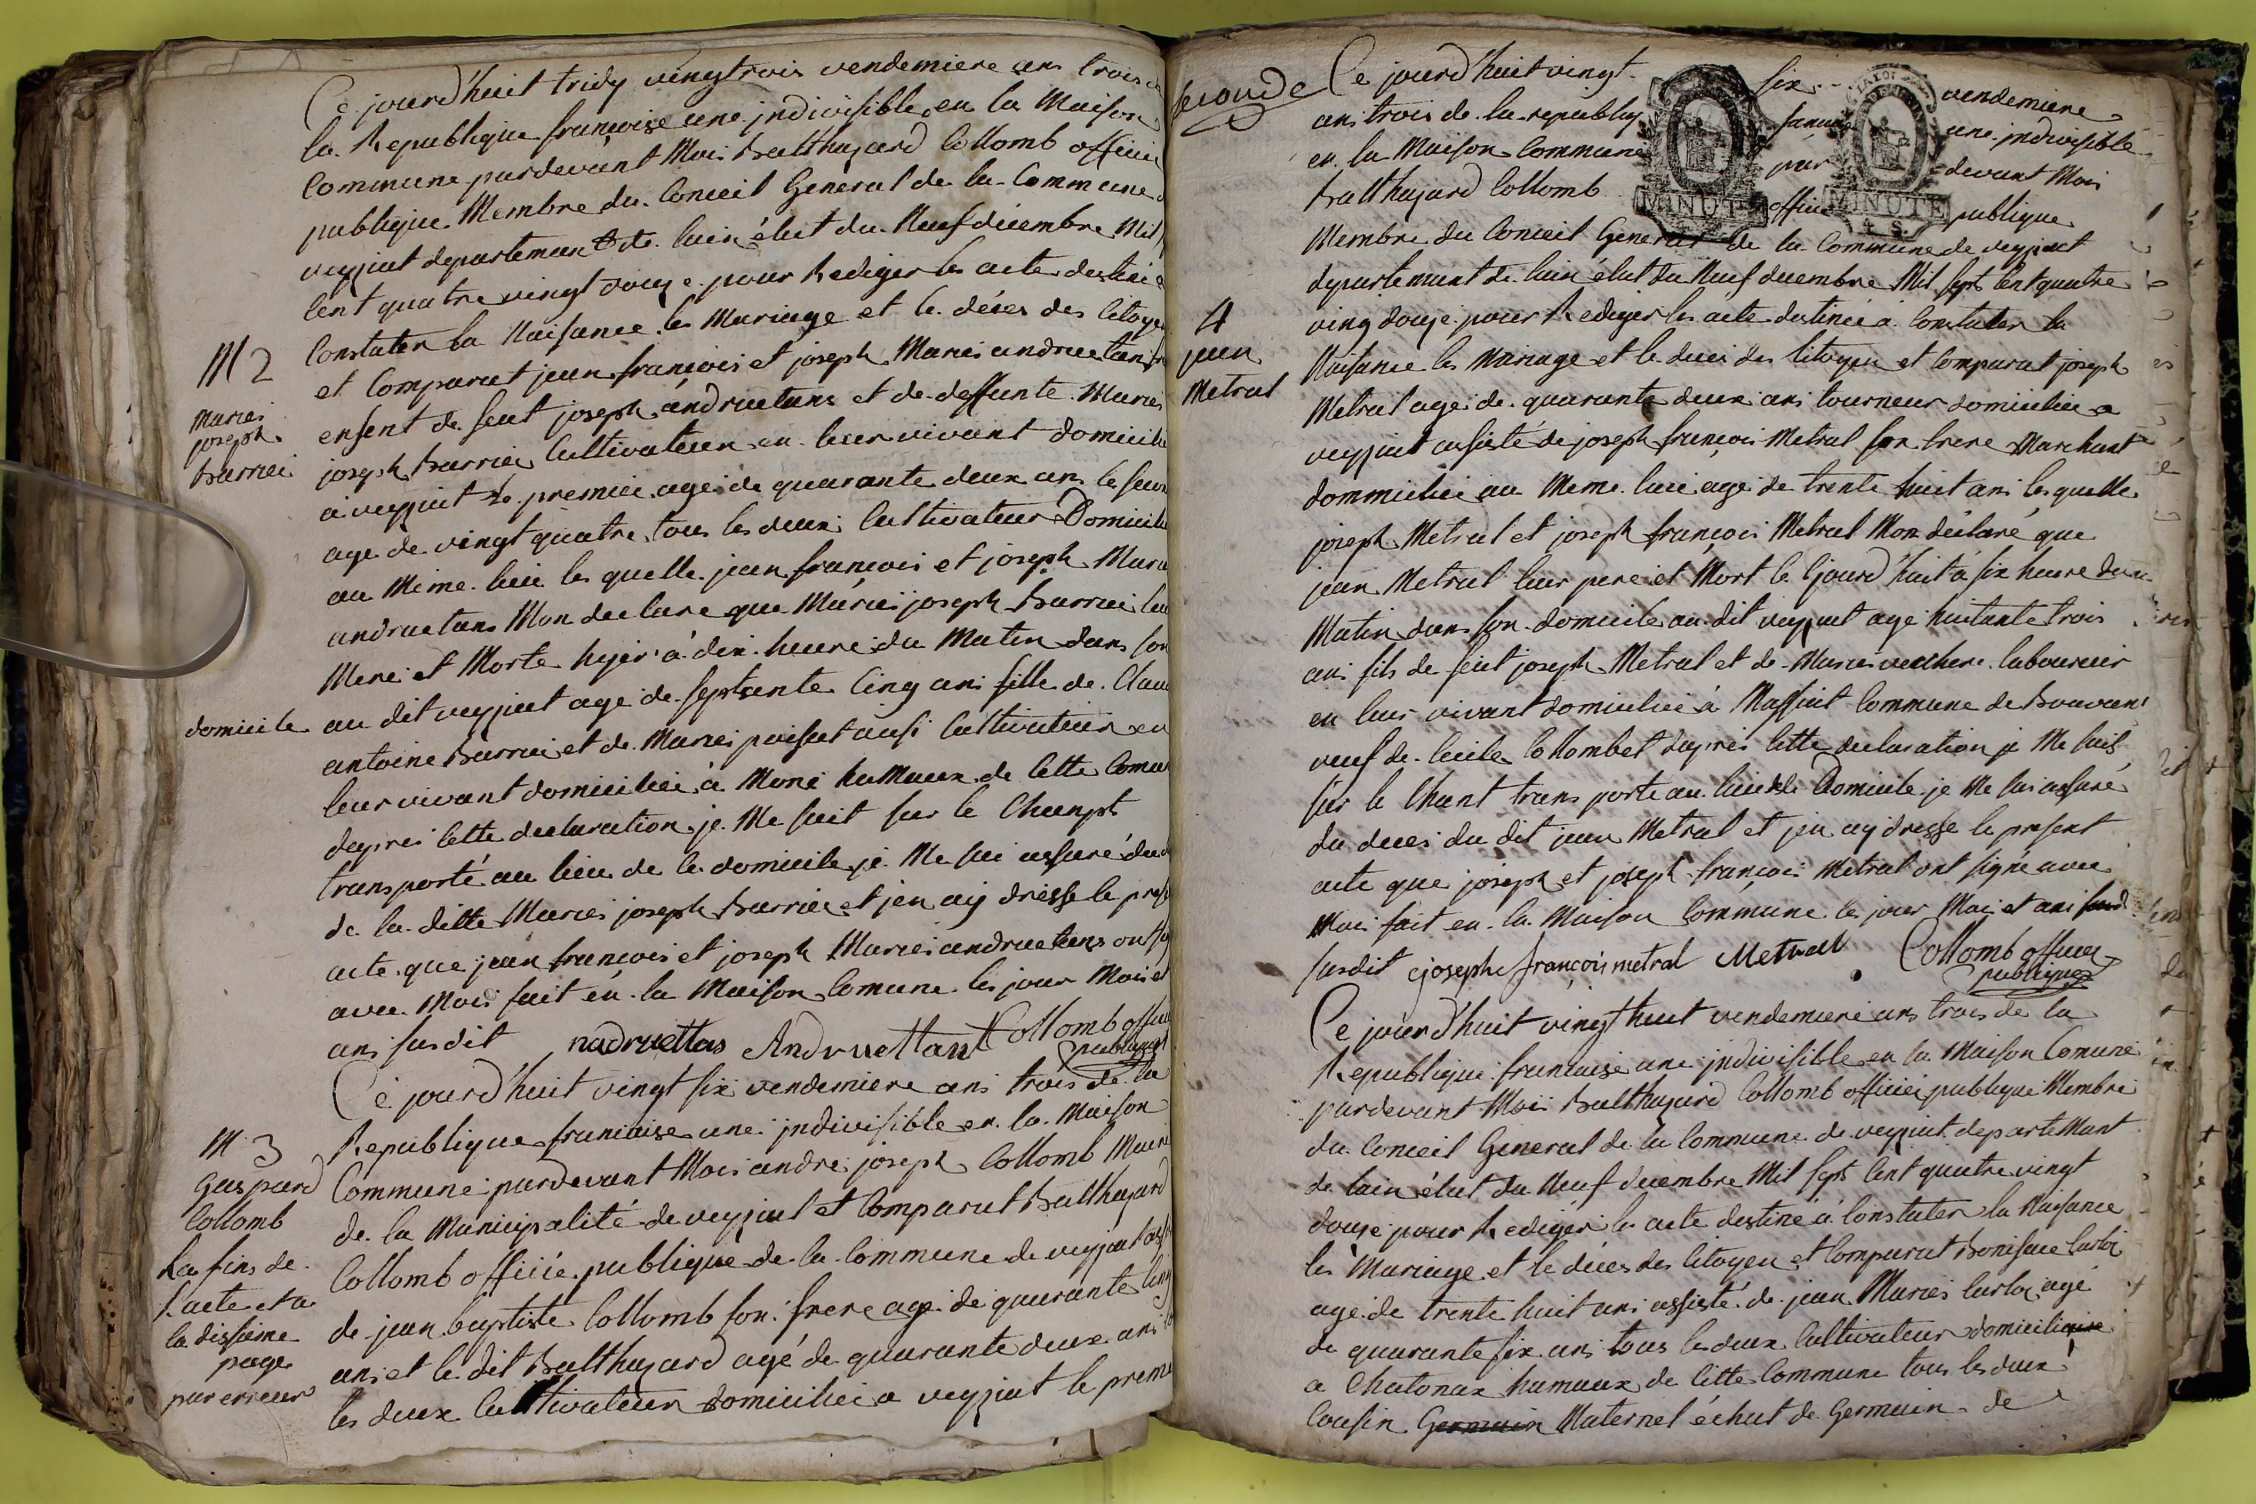 Ce jourd'huit tridy vingtrois vendemiere ans trois de
la Republique françoise une jndivisible en la Maison
Commune pardevant Moi Balthazard Collomb officie
publique Membre du Conceil General de la Commune
veyziat departement de lain élut du Neuf décembre Mil
Cent quatre vingt douze pour Rediger les acte destiné
M 2
Constater la Naisance les Mariage et le décés des Citoyen
et Comparut jean françois et joseph Marie andruetan
Marie
joseph
Barrei
enfent de feut joseph andruetans et de deffunte Marie
joseph Barrei Cultivateur en leur vivant domicilie
a veyziat le premier agé de quarante deux ans le secon
age de vingt quatre tous les deux Cultivateur Domicilie
au Meme lieu les quelle jean françois et joseph Marie
andruetans Mon declare que Marie joseph Barrei leur
Mere et Morte hyer à dix heure du Matin dans son
domicile au dit veyziat age de septente Cinq ans fille de Clau
antoine Barrei et de Marie poisat ausi Cultivateur en
leur vivant domicilieé a Moné hamaux de Cette Comu
depres Cette declaration je Me suit sur le Champt
transporté au lieu de le domicile je Me sui assuré du
de la ditte Marie joseph Barrei et jen aij dresse le prese
acte que jean françois et joseph Marie andruetans ont
avec Moi fait en la Maison Comune les jour Moi et
ans susdit nadruettas Andruettant Collomb officie
publique
Ce jourd'huit vingt six vendemiere ans trois de la
M 3
Gaspard
Collomb
La fins de
lacte et a
la dissieme
page
par erreur
Republique françaïse une jndivisible en la Maison
Commune pardevant Moi andre joseph Collomb Maire
de la Municipalité de veyziat et Comparut Balthazard
Collomb officié publique de la Commune de veyziat
de jean baptiste Collomb son frere age de quarante Cinq
ans et le dit Balthazard agé de quarante deux ans
les deux Cultivateur domicilié a veyziat le premie
seconde
Ce jourd'huit vingt six vendemiere
ans trois de la republiq française une jndivisible
en la Maison Commune par devant Moi
Balthazard Collomb office publique
MINUTE MINUTE
4 S.
Membre du Conceil General de la Commune de veyziat
departement de lain élut du Neuf decembre Mil sept Cent quatre
4
jean
Metral
ving douze pour Rediger les acte destineé a Constater la
Naisance les Mariage et le deces des Citoyen et Comparut joseph
Metral age de quarante deux ans tourneur domicilie a
veyziat assisté de joseph françois Metral son frere Marchant
dommicilié au Meme lieu age de trente huit ans les quelle
joseph Metral et joseph françois Metral Mon déclaré que
jean Metral leur pere et Mort le Cjourd'huit à six heure du
Matin dans son domicile au dit veyziat age huitante trois
ans fils de feut joseph Metral et de Marie laboureur
en leur vivant domicilié à Massiat Commune de Bouvant
veuf de Collombet d'apres Cette declaration je Me suit
sur le Chant transporte au lieu de domicile je Me sui assuré
du deces du dit jean Metral et jen aij dresse le present
acte que joseph et joseph françois Metral ont signé avec
Moi fait en la Maison Commune les jour Moi et ans
susdit joseph françois metral Metrall Collomb officier
publique
Ce jourd'huit vingt huit vendemiere ans trois de la
Republique françaïse une jndivisible en la Maison Comune
pardevant Moi Balthazard Collomb officié publique Membre
du Conceil General de la Commune de veyziat departeMant
de lain élut du Neuf decembre Mil sept Cent quatre vingt
douze pour Rediger les acte destiné a Constater la Naisance
les Mariage et le déces des Citoyen et Comparut Boniface
age de trente huit ans assisté de jean Marie agé
de quarante six ans tous les deux Cultivateur domicilie
a Chatonax hamaux de Cette Commune tous les deux
Cousin Germain Maternel échut de Germain de